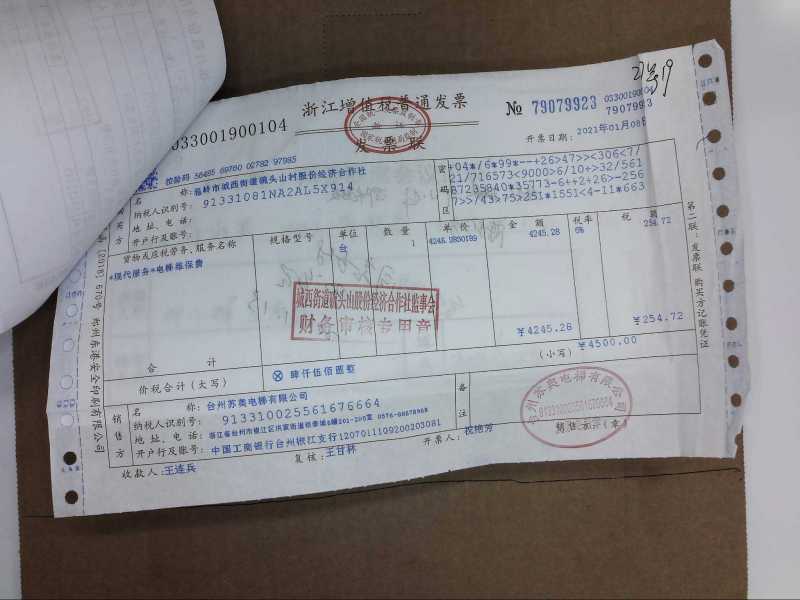 033001900104
浙江增值税普通发票
发票联
№ 79079923
033001900104
79079923
开票日期: 2021年01月08日
校验码 56485 69760 02782 97985
购买方
名 称: 临岭市城西街道碗头山村股份经济合作社
纳税人识别号: 91331081NA2AL5X914
地址、电话:
开户行及账号:
密码区
+04*/6*99*--+26>47>><306<7/
21/716573<9000>6/10+>32/561
87235840*35773-6++2+26>-256
7>>/43>75>251*1551<4-11*663
货物或应税劳务、服务名称 规格型号 单位 数量 单价 金额 税率 税额
*现代服务*电梯维保费 台 1 4245.2830189 4245.28 6% 254.72
城西街道碗头山股份经济合作社监事会
财务审核专用章
合计 ¥4245.28 ¥254.72
价税合计(大写) ⊗肆仟伍佰圆整 (小写) ¥4500.00
销售方
名 称: 台州苏奥电梯有限公司
纳税人识别号: 913310025561676664
地址、电话: 浙江省台州市椒江区洪家街道
开户行及账号: 中国工商银行台州椒江支行1207011109200203081
备注
台州苏奥电梯有限公司
913310025561676664
收款人: 王连兵 复核: 王甘林 开票人: 祝艳芳 销售方:(章)
第二联:发票联 购买方记账凭证